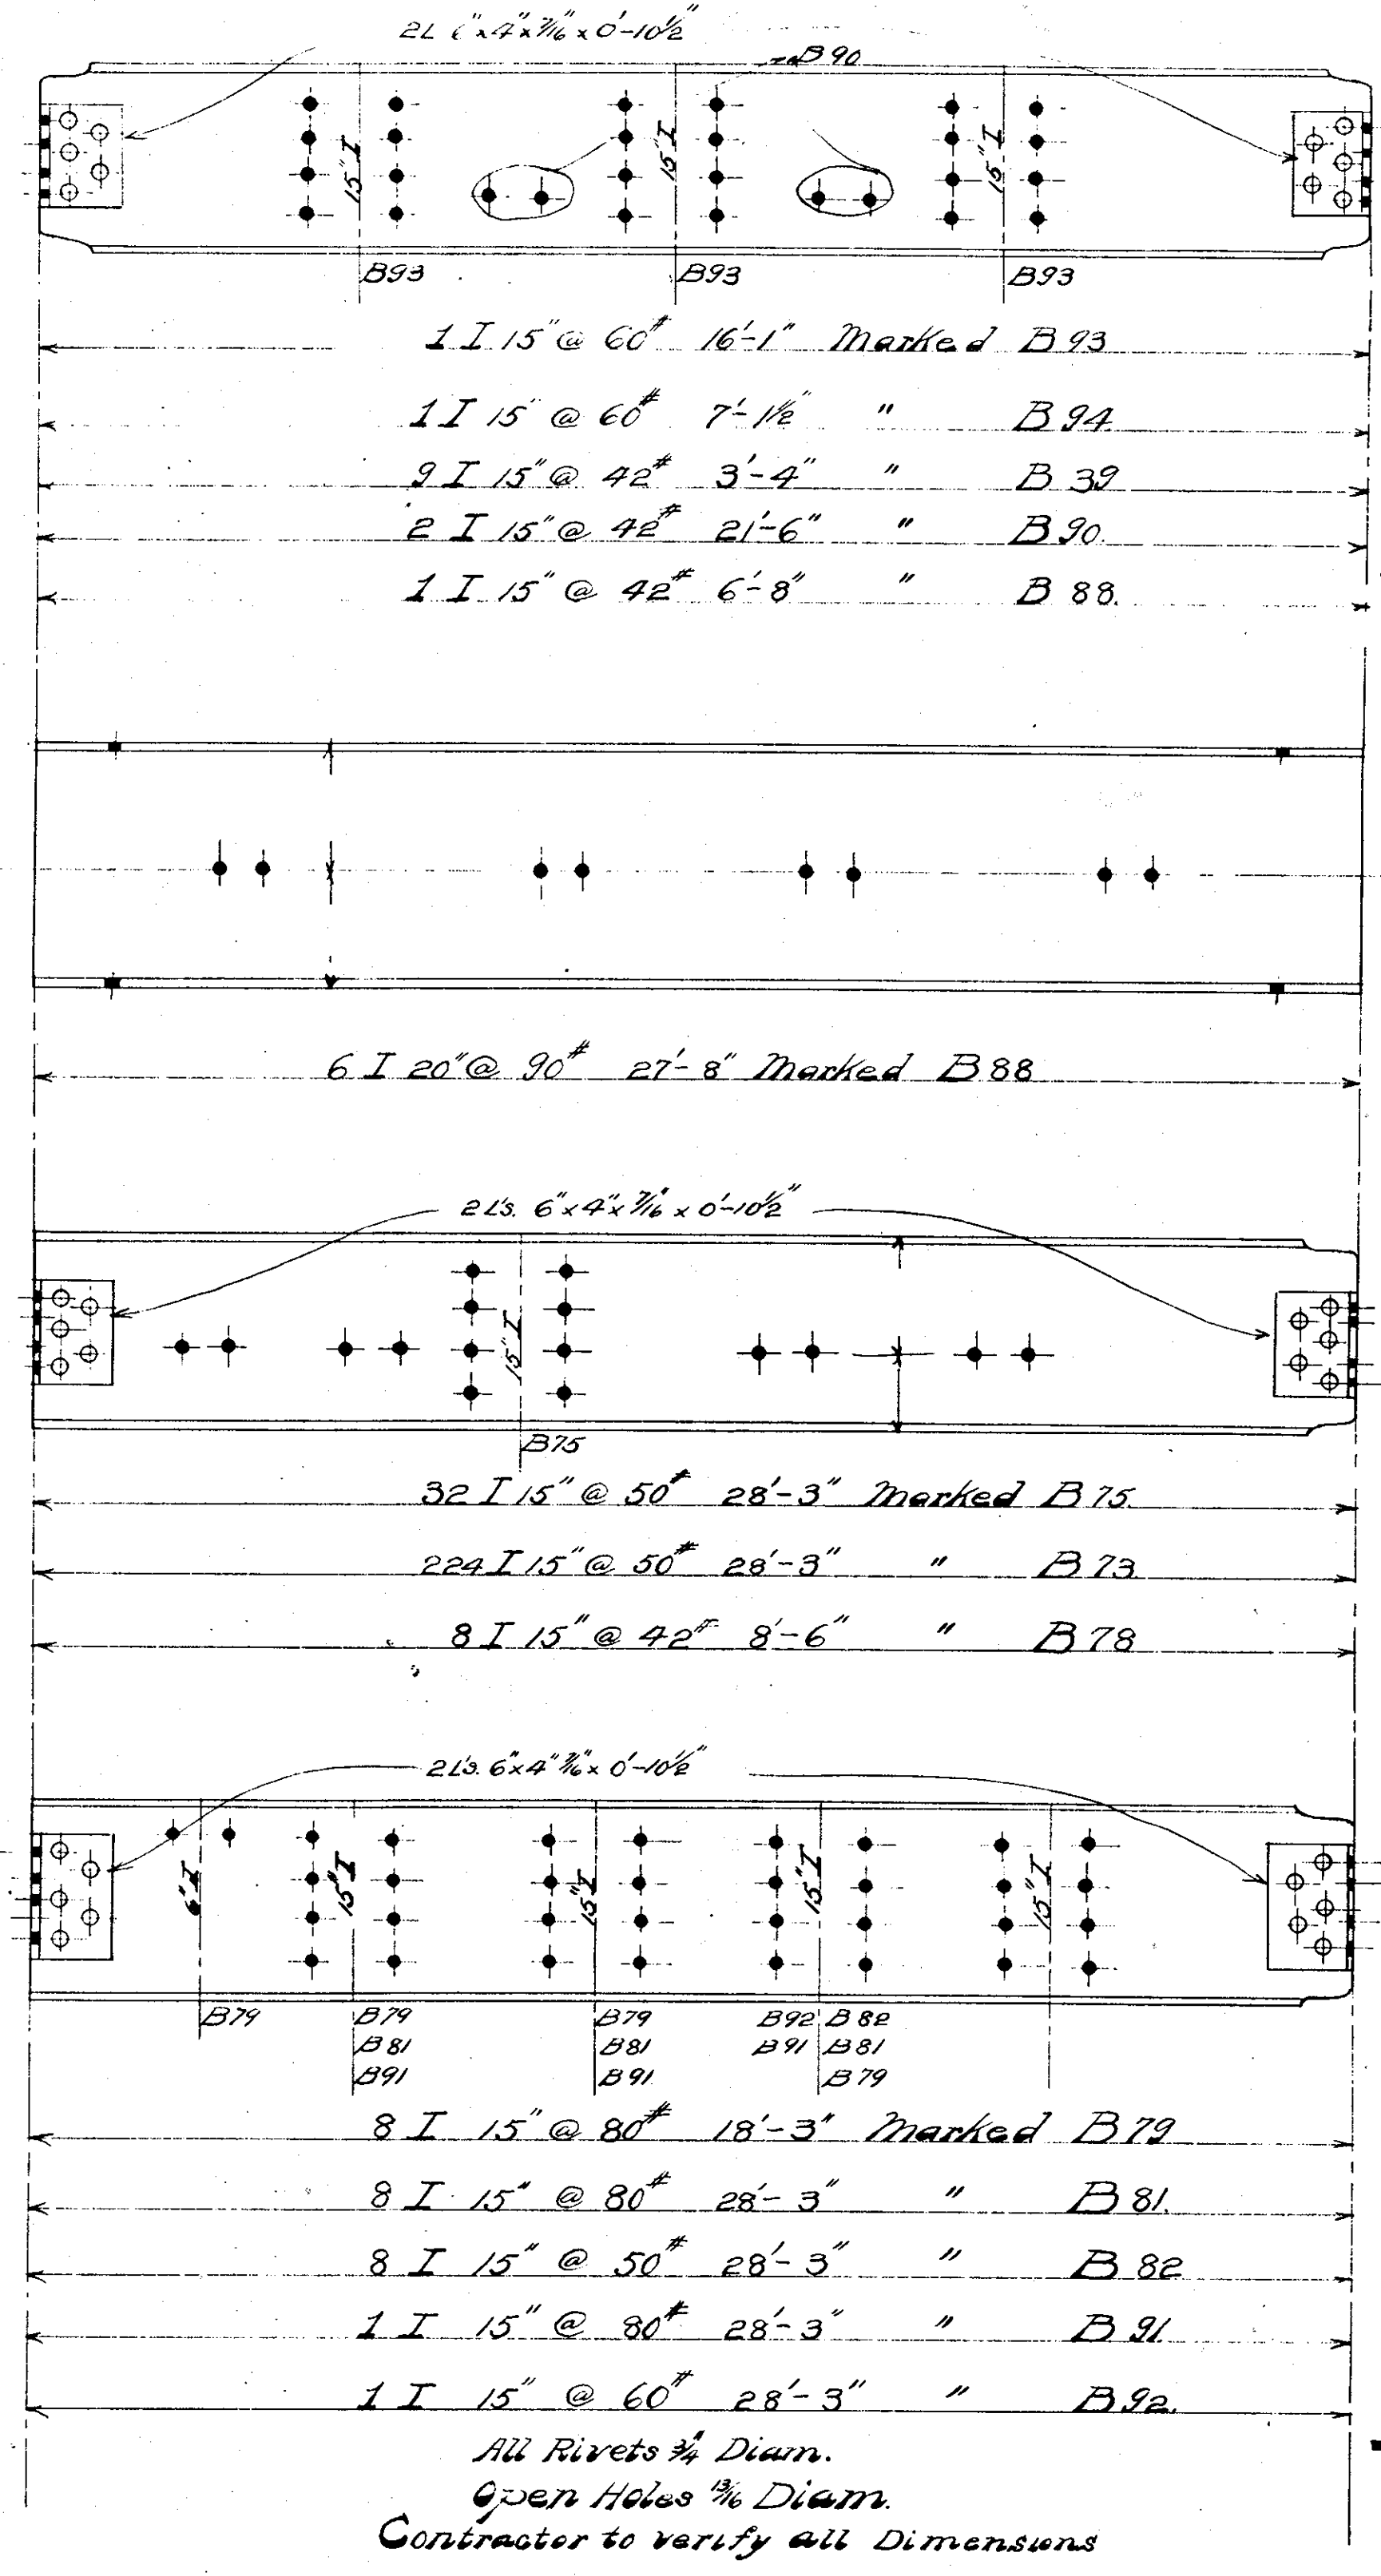 2L 6"x4"x7/16"x0'-10½"
B90
15" I 15" I 15" I
B93 B93 B93
1 I 15" @ 60# 16'-1" Marked B93
1 I 15" @ 60# 7'-1½" " B94
9 I 15" @ 42# 3'-4" " B39
2 I 15" @ 42# 21'-6" " B90
1 I 15" @ 42# 6'-8" " B88.
6 I 20" @ 90# 27'-8" Marked B88
2 L's. 6"x4"x7/16"x0'-10½"
15" I
B75
32 I 15" @ 50# 28'-3" Marked B75
224 I 15" @ 50# 28'-3" " B73
8 I 15" @ 42# 8'-6" " B78
2 L's. 6"x4"7/16"x0'-10½"
6" I 15" I 15" I 15" I 15" I
B79 B79 B79 B92 B82
B81 B81 B91 B81
B91 B91 B79
8 I 15" @ 80# 18'-3" Marked B79
8 I 15" @ 80# 28'-3" " B81.
8 I 15" @ 50# 28'-3" " B82
1 I 15" @ 80# 28'-3" " B91
1 I 15" @ 60# 28'-3" " B92.
All Rivets ¾" Diam.
Open Holes 13/16 Diam.
Contractor to verify all Dimensions